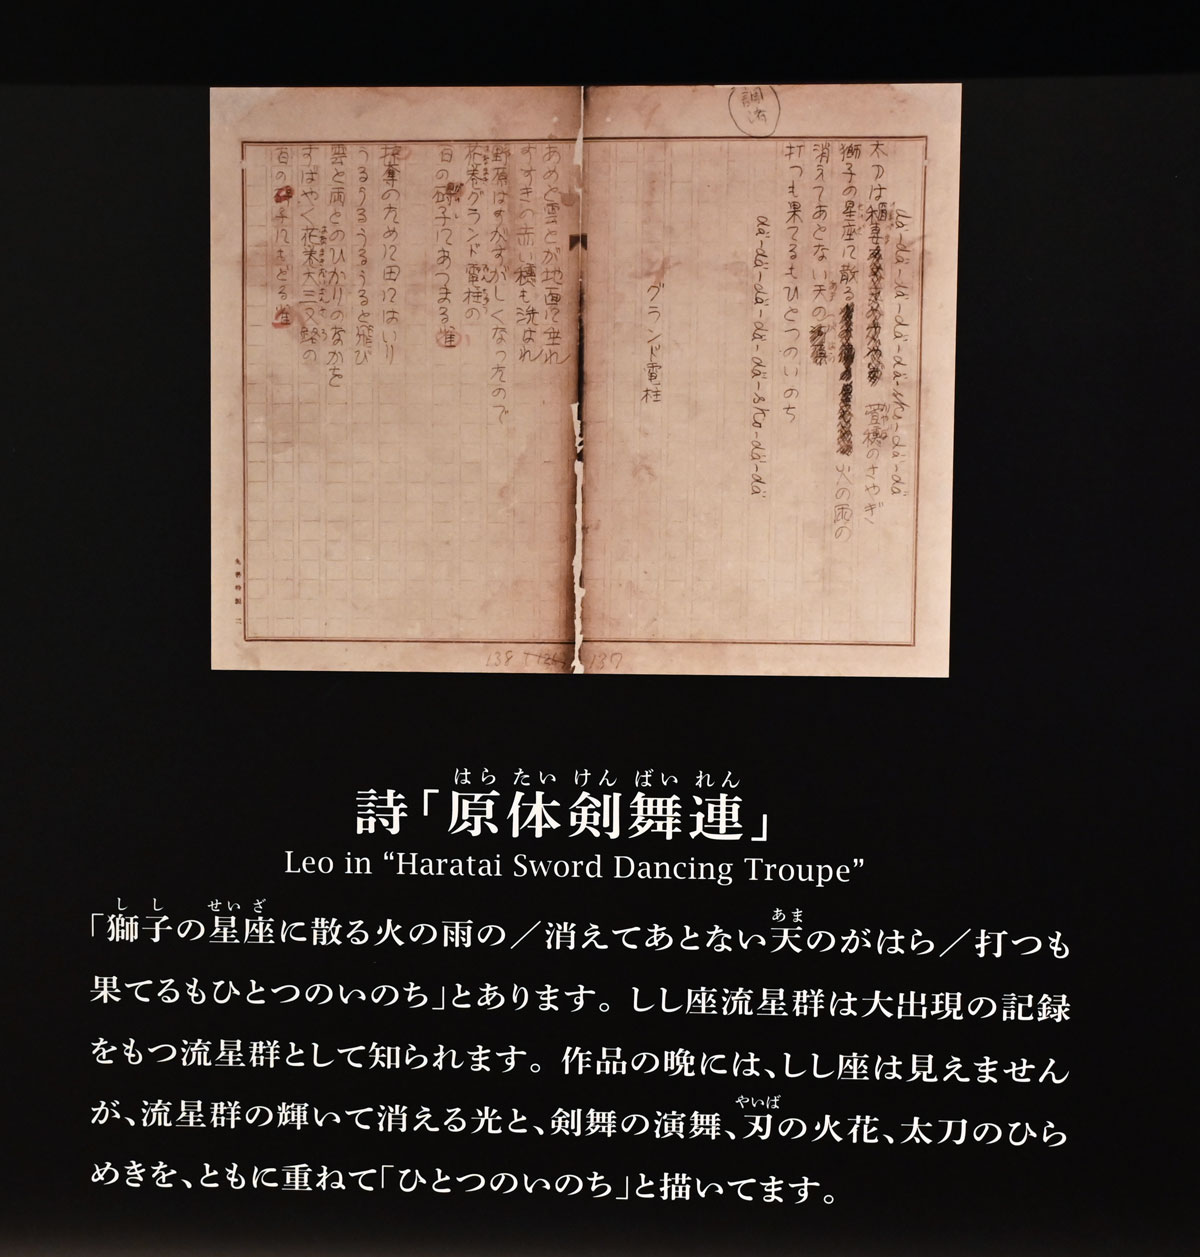 dä-dä-dä-dä-dä-sko-dä-dä
太刀は稲妻萱穂のさやぎ
獅子の星座に散る火の雨の
消えてあとない天の
打つも果てるもひとつのいのち
dä-dä-dä-dä-dä-sko-dä-dä
グランド電柱
あめと雲とが地面に垂れ
すすきの赤い穂も洗はれ
野原はすがすがしくなったので
花巻グランド電柱の
百の碍子にあつまる雀
掠奪のために田にはいり
うるうるうるうると飛び
雲と雨とのひかりのなかを
すばやく花巻大三叉路の
百の碍子にもどる雀
138
137
はらたいけんばいれん
詩「原体剣舞連」
Leo in “Haratai Sword Dancing Troupe”
しし せいざ あま
「獅子の星座に散る火の雨の／消えてあとない天のがはら／打つも
果てるもひとつのいのち」とあります。しし座流星群は大出現の記録
をもつ流星群として知られます。作品の晩には、しし座は見えません
やいば
が、流星群の輝いて消える光と、剣舞の演舞、刃の火花、太刀のひら
めきを、ともに重ねて「ひとつのいのち」と描いてます。